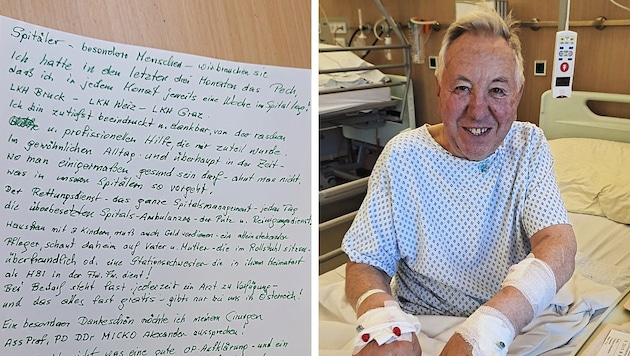 Spitäler - besondere Menschen - wir brauchen sie
Ich hatte in den letzten drei Monaten das Pech,
daß ich in jedem Monat jeweils eine Woche im Spital lag!
LKH Bruck - LKH Weiz - LKH Graz.
Ich bin zutiefst beeindruckt u. dankbar, von der raschen
u. professionellen Hilfe, die mir zuteil wurde.
Im gewöhnlichen Alltag - und überhaupt in der Zeit -
wo man einigermaßen gesund sein darf - ahnt man nicht,
was in unseren Spitälern so vorgeht!
Der Rettungsdienst - das ganze Spitalsmanagement - jeden Tag
die überbesetzten Spitals-Ambulanzen - der Putz u. Reinigungsdienst,
Hausfrau mit 3 Kindern, muß auch Geld verdienen - ein alleinstehender
Pfleger, schaut daheim auf Vater u. Mutter - die im Rollstuhl sitzen -
überfreundlich od. eine Stationsschwester die in ihrem Heimatort
als HBI in der Fw. Fw. dient!
Bei Bedarf steht fast jederzeit ein Arzt zu Verfügung -
und das alles fast gratis - gibts nur bei uns in Österreich!
Ein besonderes Dankeschön möchte ich meinem Chirurgen
Ass Prof, PD DDr MICKO Alexander aussprechen!
was eine gute OP-Aufklärung - und ein